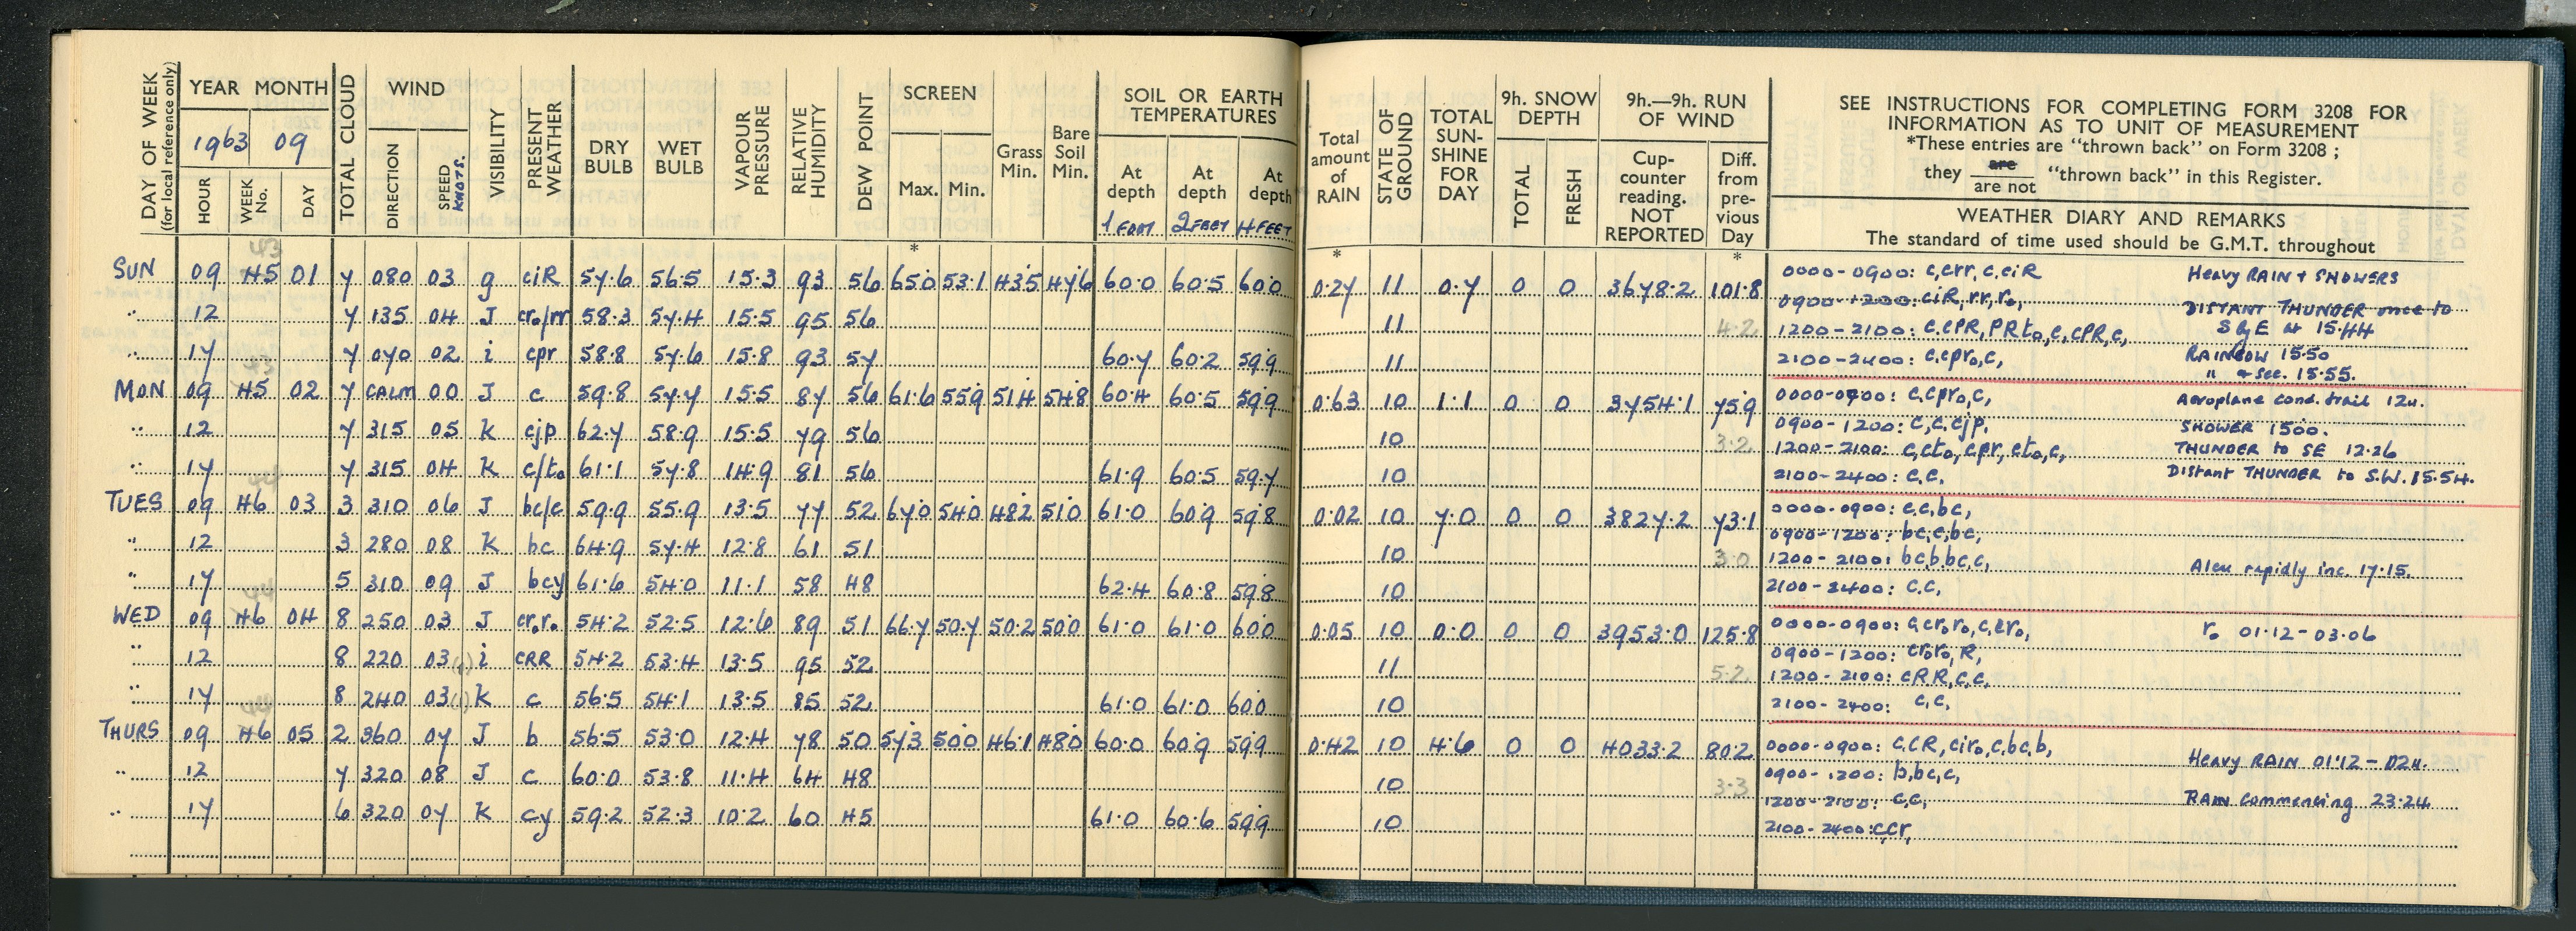 DAY OF WEEK
(for local reference only)
YEAR MONTH
1963 09
HOUR
WEEK No.
DAY
TOTAL CLOUD
WIND
DIRECTION
SPEED KNOTS.
VISIBILITY
PRESENT WEATHER
DRY BULB
WET BULB
VAPOUR PRESSURE
RELATIVE HUMIDITY
DEW POINT
SCREEN
Max. Min.
Grass Min.
Bare Soil Min.
SOIL OR EARTH
TEMPERATURES
At depth 1 FOOT
At depth 2 FEET
At depth 4 FEET
*
SUN 09 45 01 7 080 03 g ciR 57.6 56.5 15.3 93 56 65.0 53.1 43.5 47.6 60.0 60.5 60.0
" 12 7 135 04 J cr₀/rr 58.3 57.4 15.5 95 56
" 17 7 070 02 i cpr 58.8 57.6 15.8 93 57 60.7 60.2 59.9
MON 09 45 02 7 CALM 00 J c 59.8 57.7 15.5 87 56 61.6 55.9 51.4 54.8 60.4 60.5 59.9
" 12 7 315 05 K cjp 62.7 58.9 15.5 79 56
" 17 7 315 04 K c/t₀ 61.1 57.8 14.9 81 56 61.9 60.5 59.7
TUES 09 46 03 3 310 06 J bc/c 59.9 55.9 13.5 77 52 67.0 54.0 48.2 51.0 61.0 60.9 59.8
" 12 3 280 08 K bc 64.9 57.4 12.8 61 51
" 17 5 310 09 J bcy 61.6 54.0 11.1 58 48 62.4 60.8 59.8
WED 09 46 04 8 250 03 J cr₀r₀ 54.2 52.5 12.6 89 51 66.7 50.7 50.2 50.0 61.0 61.0 60.0
" 12 8 220 03 i cRR 54.2 53.4 13.5 95 52
" 17 8 240 03 K c 56.5 54.1 13.5 85 52 61.0 61.0 60.0
THURS 09 46 05 2 360 07 J b 56.5 53.0 12.4 78 50 57.3 50.0 46.1 48.0 60.0 60.9 59.9
" 12 7 320 08 J c 60.0 53.8 11.4 64 48
" 17 6 320 07 K cy 59.2 52.3 10.2 60 45 61.0 60.6 59.9
Total amount of RAIN
STATE OF GROUND
TOTAL SUN-SHINE FOR DAY
9h. SNOW DEPTH
TOTAL
FRESH
9h.—9h. RUN OF WIND
Cup-counter reading. NOT REPORTED
Diff. from pre-vious Day
SEE INSTRUCTIONS FOR COMPLETING FORM 3208 FOR
INFORMATION AS TO UNIT OF MEASUREMENT
*These entries are "thrown back" on Form 3208 ;
they are / are not "thrown back" in this Register.
WEATHER DIARY AND REMARKS
The standard of time used should be G.M.T. throughout
* *
0.27 11 0.7 0 0 3678.2 101.8 0000-0900: c,crr, c,ciR Heavy RAIN + SHOWERS
0900-1200: ciR, rr, r₀, DISTANT THUNDER once to
11 4.2 1200-2100: c,cPR, PRt₀, c, cPR, c, S by E at 15.44
11 2100-2400: c,cpr₀,c, RAINBOW 15.50
" & sec. 15.55.
0.63 10 1.1 0 0 3754.1 75.9 0000-0900: c,cpr₀,c, Aeroplane cond. trail 12u.
0900-1200: c,c,cjp, SHOWER 1500.
10 3.2 1200-2100: c,ct₀, cpr, ct₀,c, THUNDER to SE 12.26
10 2100-2400: c,c, Distant THUNDER to S.W. 15.54.
0.02 10 7.0 0 0 3827.2 73.1 0000-0900: c,c,bc,
0900-1200: bc,c,bc,
10 3.0 1200-2100: bc,b,bc,c, rapidly inc. 17.15.
10 2100-2400: c,c,
0.05 10 0.0 0 0 3953.0 125.8 0000-0900: c,cr₀r₀,c,cr₀, r₀ 01.12-03.06
0900-1200: cr₀r₀, R,
11 5.2 1200-2100: cRR,c,c,
10 2100-2400: c,c,
0.42 10 4.6 0 0 4033.2 80.2 0000-0900: c,cR, cir₀,c,bc,b, Heavy RAIN 01.12-02u.
10 3.3 0900-1200: b,bc,c,
1200-2100: c,c, RAIN commencing 23.24
10 2100-2400: c,cr,